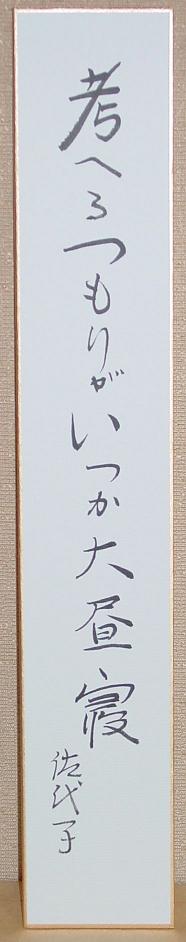 考へるつもりがいつか大昼寝
佐代子